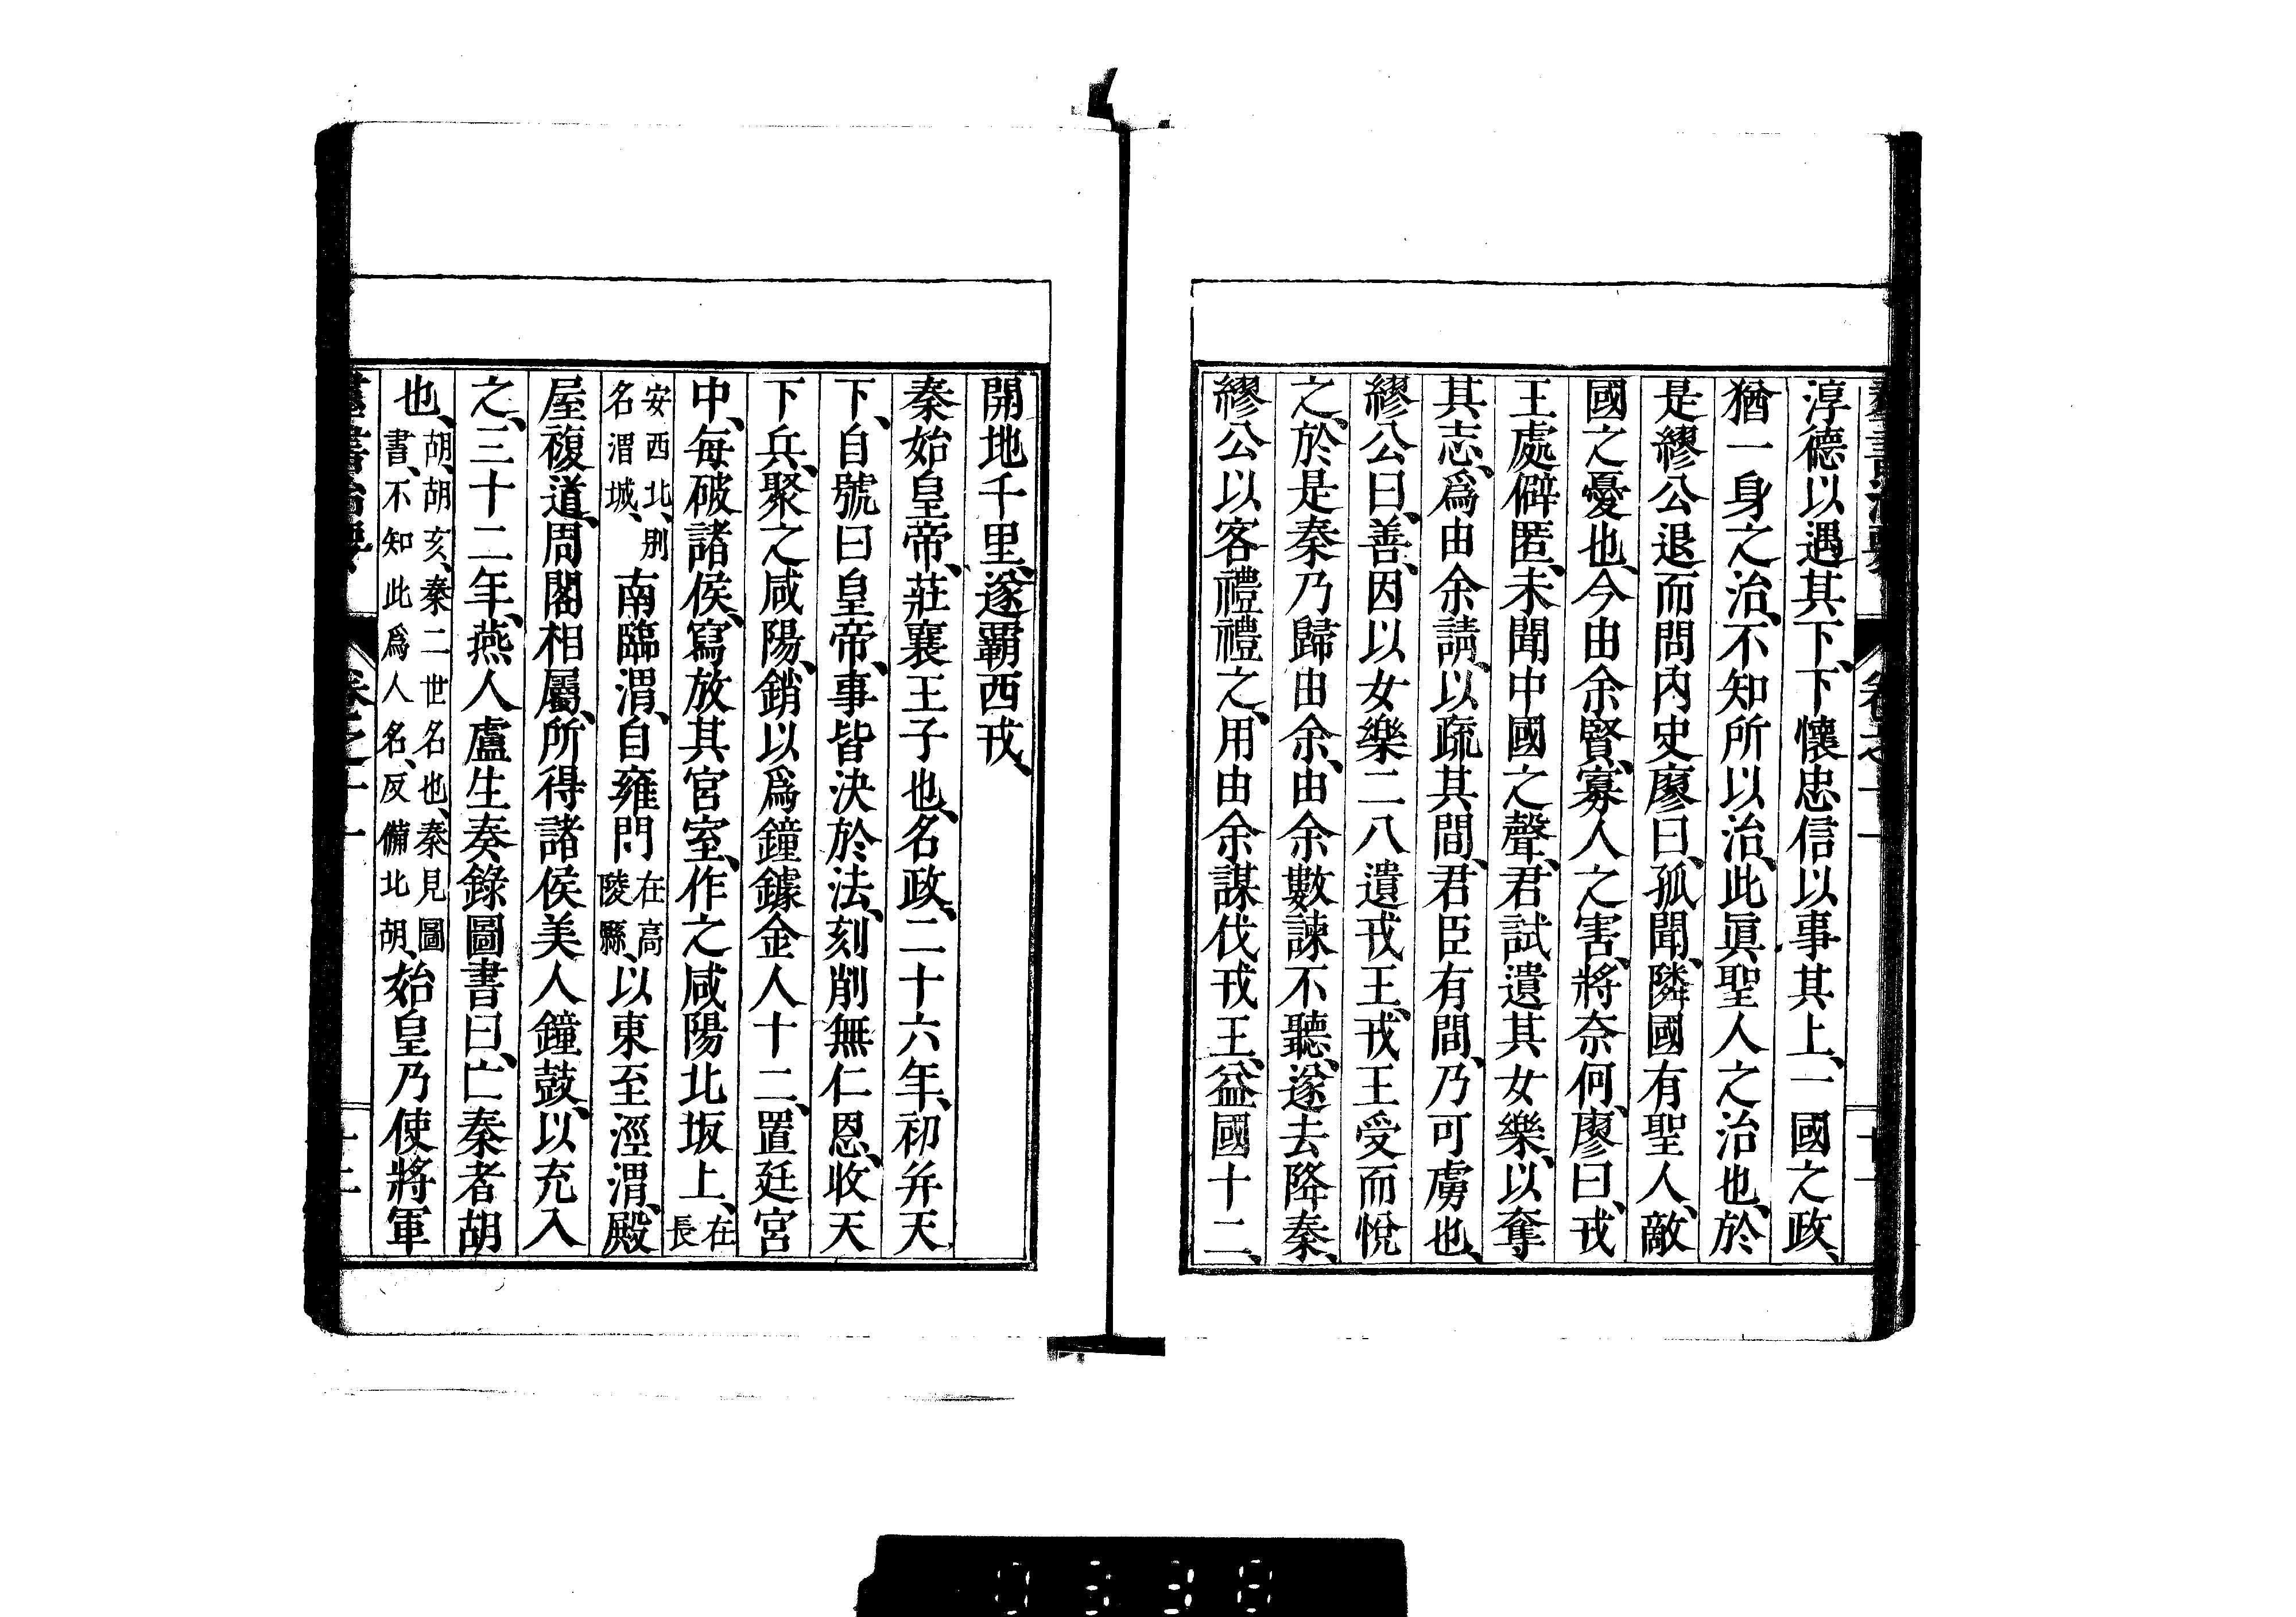 淳德以遇其下、下懷忠信以事其上、一國之政、
猶一身之治、不知所以治、此眞聖人之治也、於
是繆公退而問內史廖曰、孤聞、隣國有聖人、敵
國之憂也、今由余賢、寡人之害、將奈何、廖曰、戎
王處僻匿、未聞中國之聲、君試遺其女樂、以奪
其志、爲由余請、以疏其間、君臣有間、乃可虜也、
繆公曰、善、因以女樂二八遺戎王、戎王受而悅
之、於是秦乃歸由余、由余數諫不聽、遂去降秦、
繆公以客禮禮之、用由余謀伐戎王、益國十二、
開地千里、遂霸西戎、
秦始皇帝、莊襄王子也、名政、二十六年、初幷天
下、自號曰皇帝、事皆決於法、刻削無仁恩、收天
下兵、聚之咸陽、銷以爲鐘鐻金人十二、置廷宮
中、每破諸侯、寫放其宮室、作之咸陽北坂上、在長
安西北、別名渭城、南臨渭、自雍門在高陵縣、以東至涇渭、殿
屋複道、周閣相屬、所得諸侯美人鐘鼓、以充入
之、三十二年、燕人盧生奏錄圖書曰、亡秦者胡
也、胡、胡亥、秦二世名也、秦見圖書、不知此爲人名、反備北胡、始皇乃使將軍